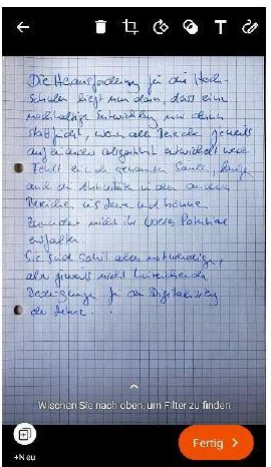 Die Herausforderung für die Hoch-
Schulen liegt nun darin, dass eine
nachhaltige Entwicklung nur dann
stattfindet, wenn alle Bereiche jeweils
aufeinander abgestimmt entwickelt werden
Fehlt eine der genannten Säulen, hängen
auch die Aktivitäten in den anderen
Bereichen und können
zumindest nicht ihr volles Potential
entfalten
Sie sind somit alle notwendige,
aber jeweils nicht hinreichende
Bedingungen für die Digitalisierung
der Lehre.
Wischen Sie nach oben, um Filter zu finden
+Neu
Fertig